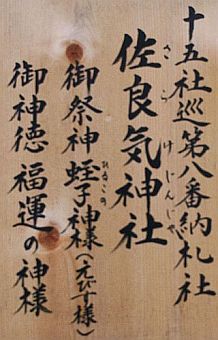 十五社巡第八番納札社
佐良気神社
さらけじんじゃ
御祭神 蛭子神様(えびす様)
ひるこの
御神徳 福運の神様